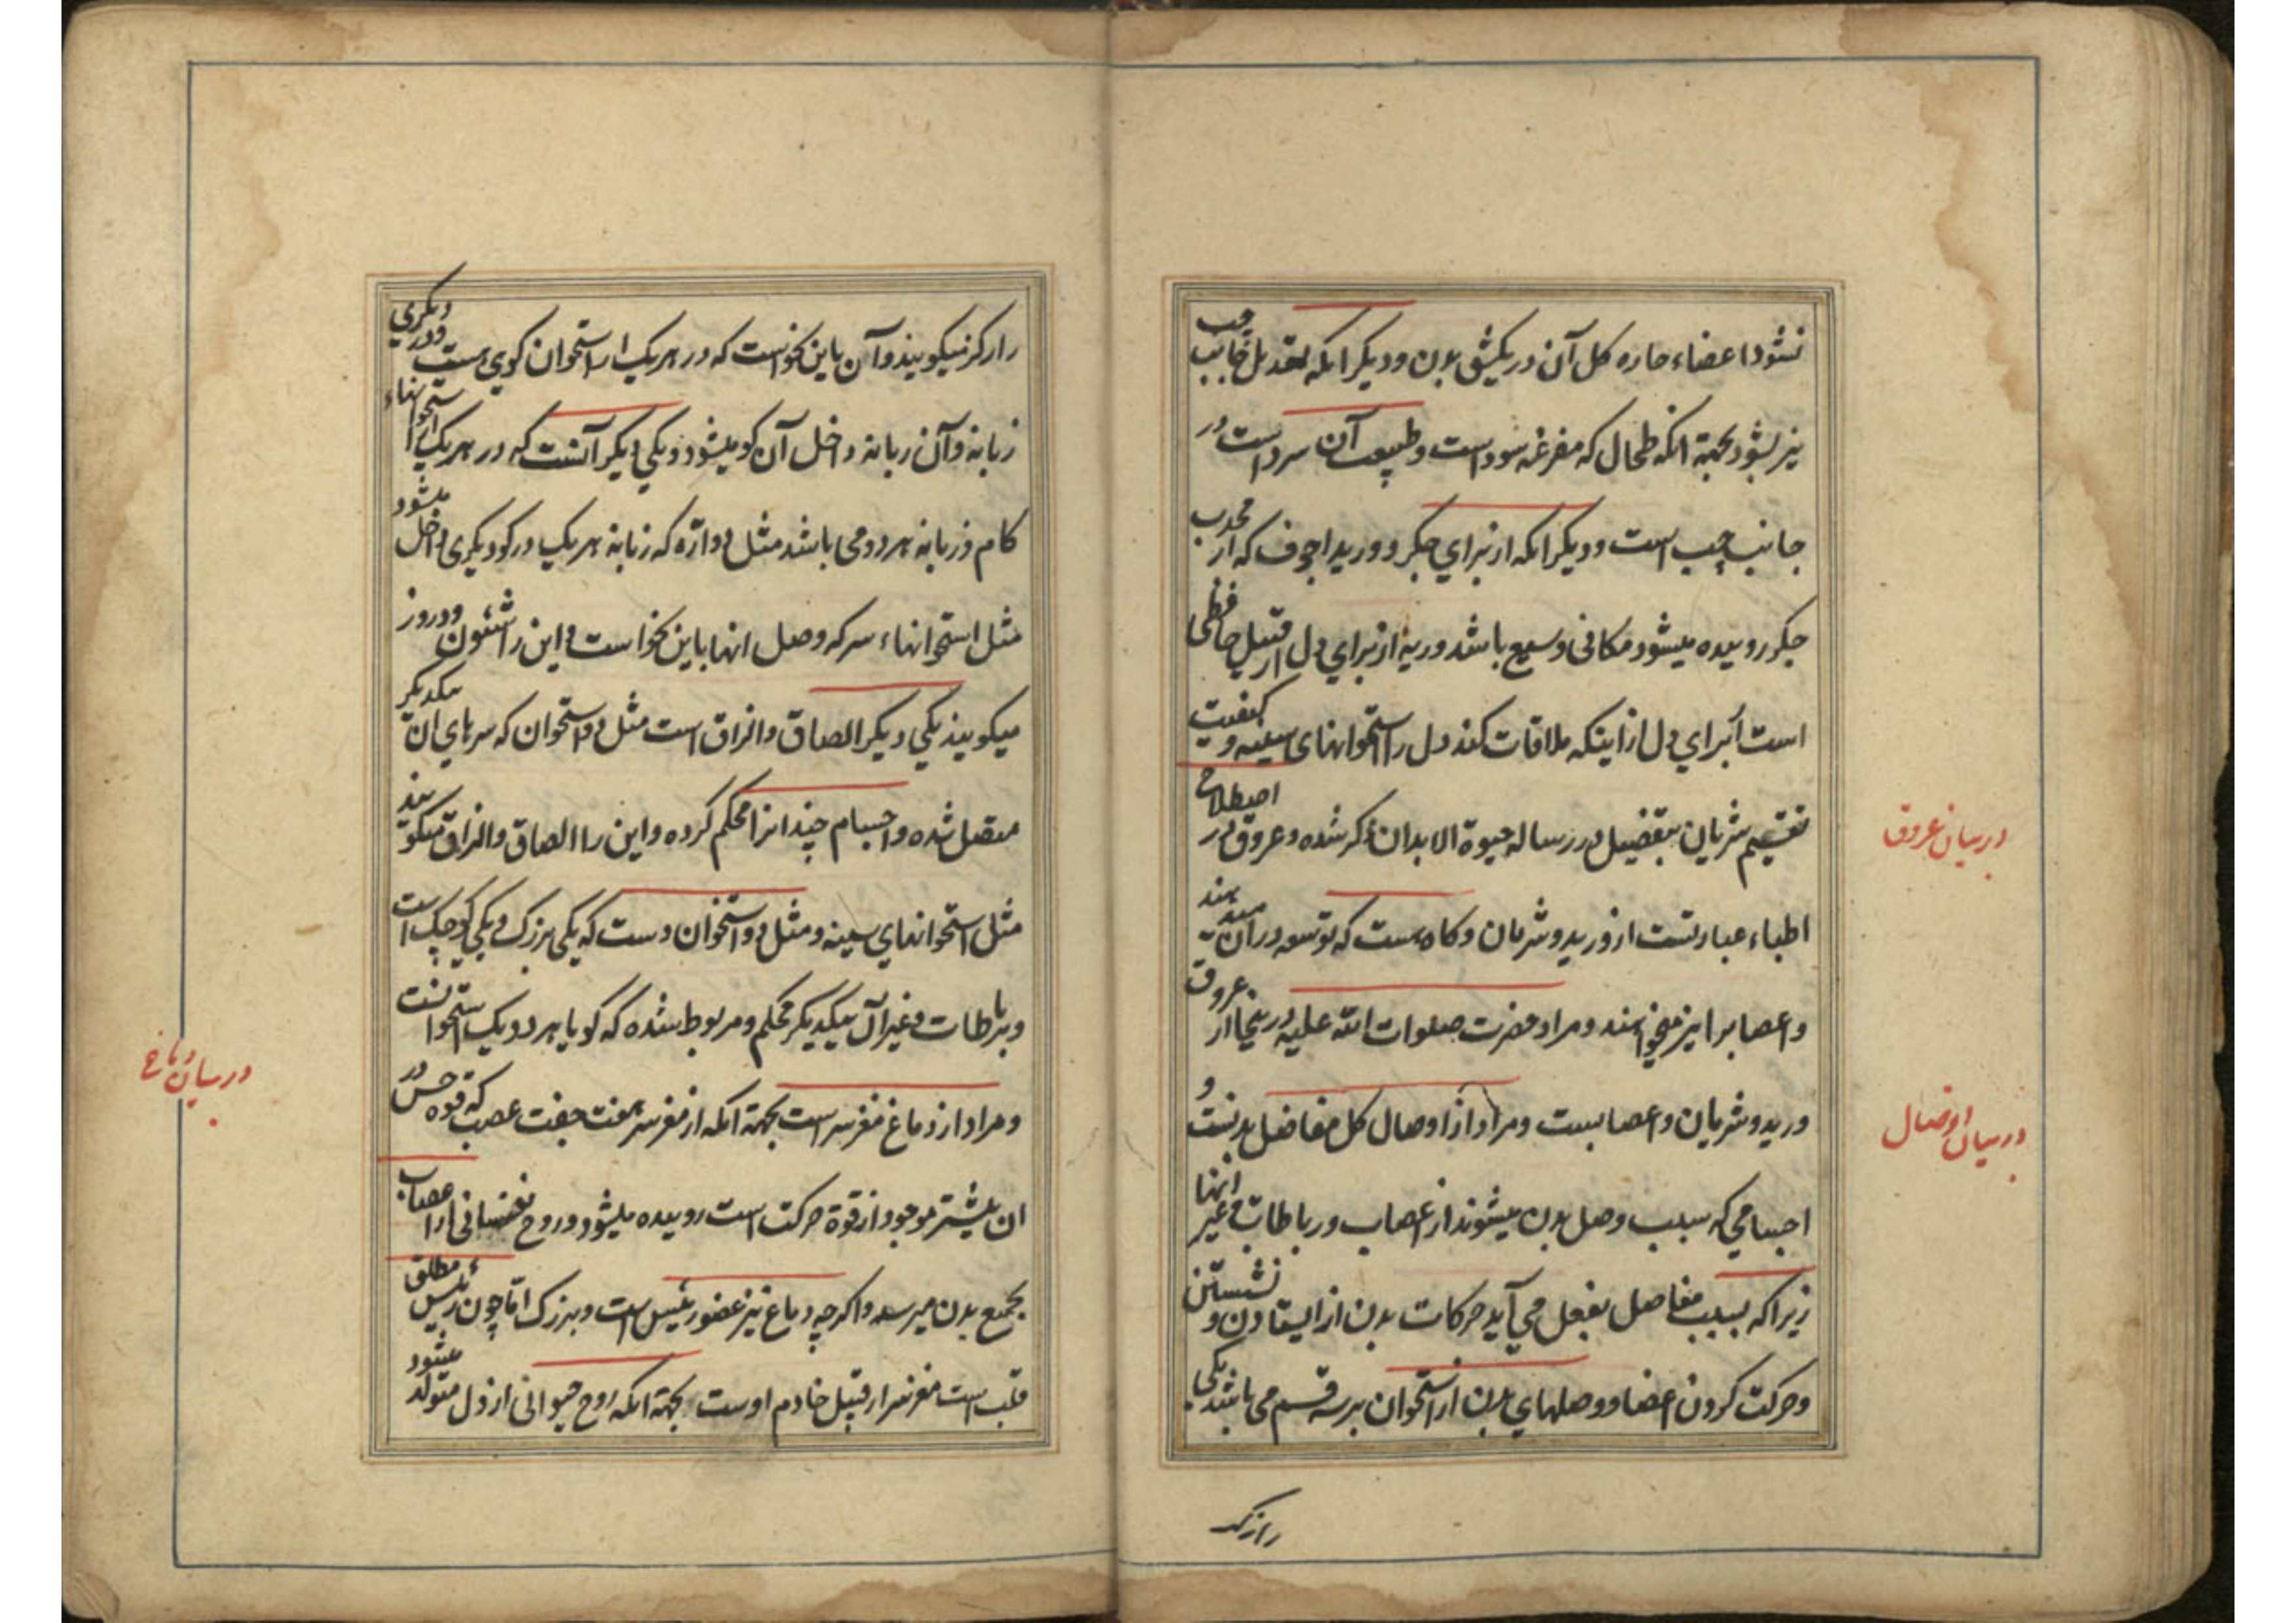 نشود اعضاء حاره کل آن در یکشق بدن و دیکر انکه تعدیل جانب چپ
نیز بشود بجهة انکه طحال که مفرغه سوداست و طبیعت آن سرد است در
جانب چپ است و دیکر انکه از برای جکر و ورید اجوف که از محدب
جکر روییده میشود مکانی وسیع باشد و ریه از برای دل از قبیل حافظی
است از برای دل از اینکه ملاقات کند دل را استخوانهای سینه و کیفیت
تقسیم شریان بتفصیل در رساله حیوة الابدان ذکر شده و عروق در اصطلاح
اطباء عبارتست از ورید و شریان و کاه هست که توسعه در آن میدهند
و اعصاب را نیز میخواهند و مراد حضرت صلوات الله علیه در ینجا از عروق
ورید و شریان و اعصابست و مراد از اوصال کل مفاصل بدنست و
اجسامی که سبب وصل بدن میشوند از اعصاب و رباطات و غیر انها
زیرا که بسبب مفاصل بفعل می آید حرکات بدن از ایستادن و نشستن
و حرکت کردن اعضا و وصلهای بدن از استخوان بر سه قسم می باشد یکی
را رکز
در بیان عروق
در بیان اوصال
را رکز میکویند و آن باین نحو است که در هر یک از استخوان کوی هست و در دیکری
زبانه و آن زبانه داخل آن کو میشود و یکی دیکر آنست که در هر یک از استخوانهاء
کام و زبانه هر دو می باشد مثل دو ارّه که زبانه هر یک در کو دیکری داخل میشود
مثل استخوانهاء سر که وصل انها باین نحو است و این را شئون و دروز
میکویند یکی دیکر الصاق و الزاق است مثل دو استخوان که سرهای ان بیکدیکر
متصل شده و اجسام چند انرا محکم کرده و این را الصاق و الزاق میکویند
مثل استخوانهای سینه و مثل دو استخوان دست که یکی بزرک و یکی کوچک است
و برباطات و غیر آن بیکدیکر محکم و مربوط شده که کویا هر دو یک استخوانست
و مراد از دماغ مغز سر است بجهة انکه از مغز سر هفت جفت عصب که قوه حس در
ان بیشتر موجود از قوة حرکت است روییده میشود و روح نفسانی از اعصاب
بجمیع بدن میرسد و اکرچه دماغ نیز عضو رئیس است و بزرک امّا چون رئیس مطلق
قلب است مغز سر از قبیل خادم اوست بجهة انکه روح حیوانی از دل متولد میشود
در بیان دماغ